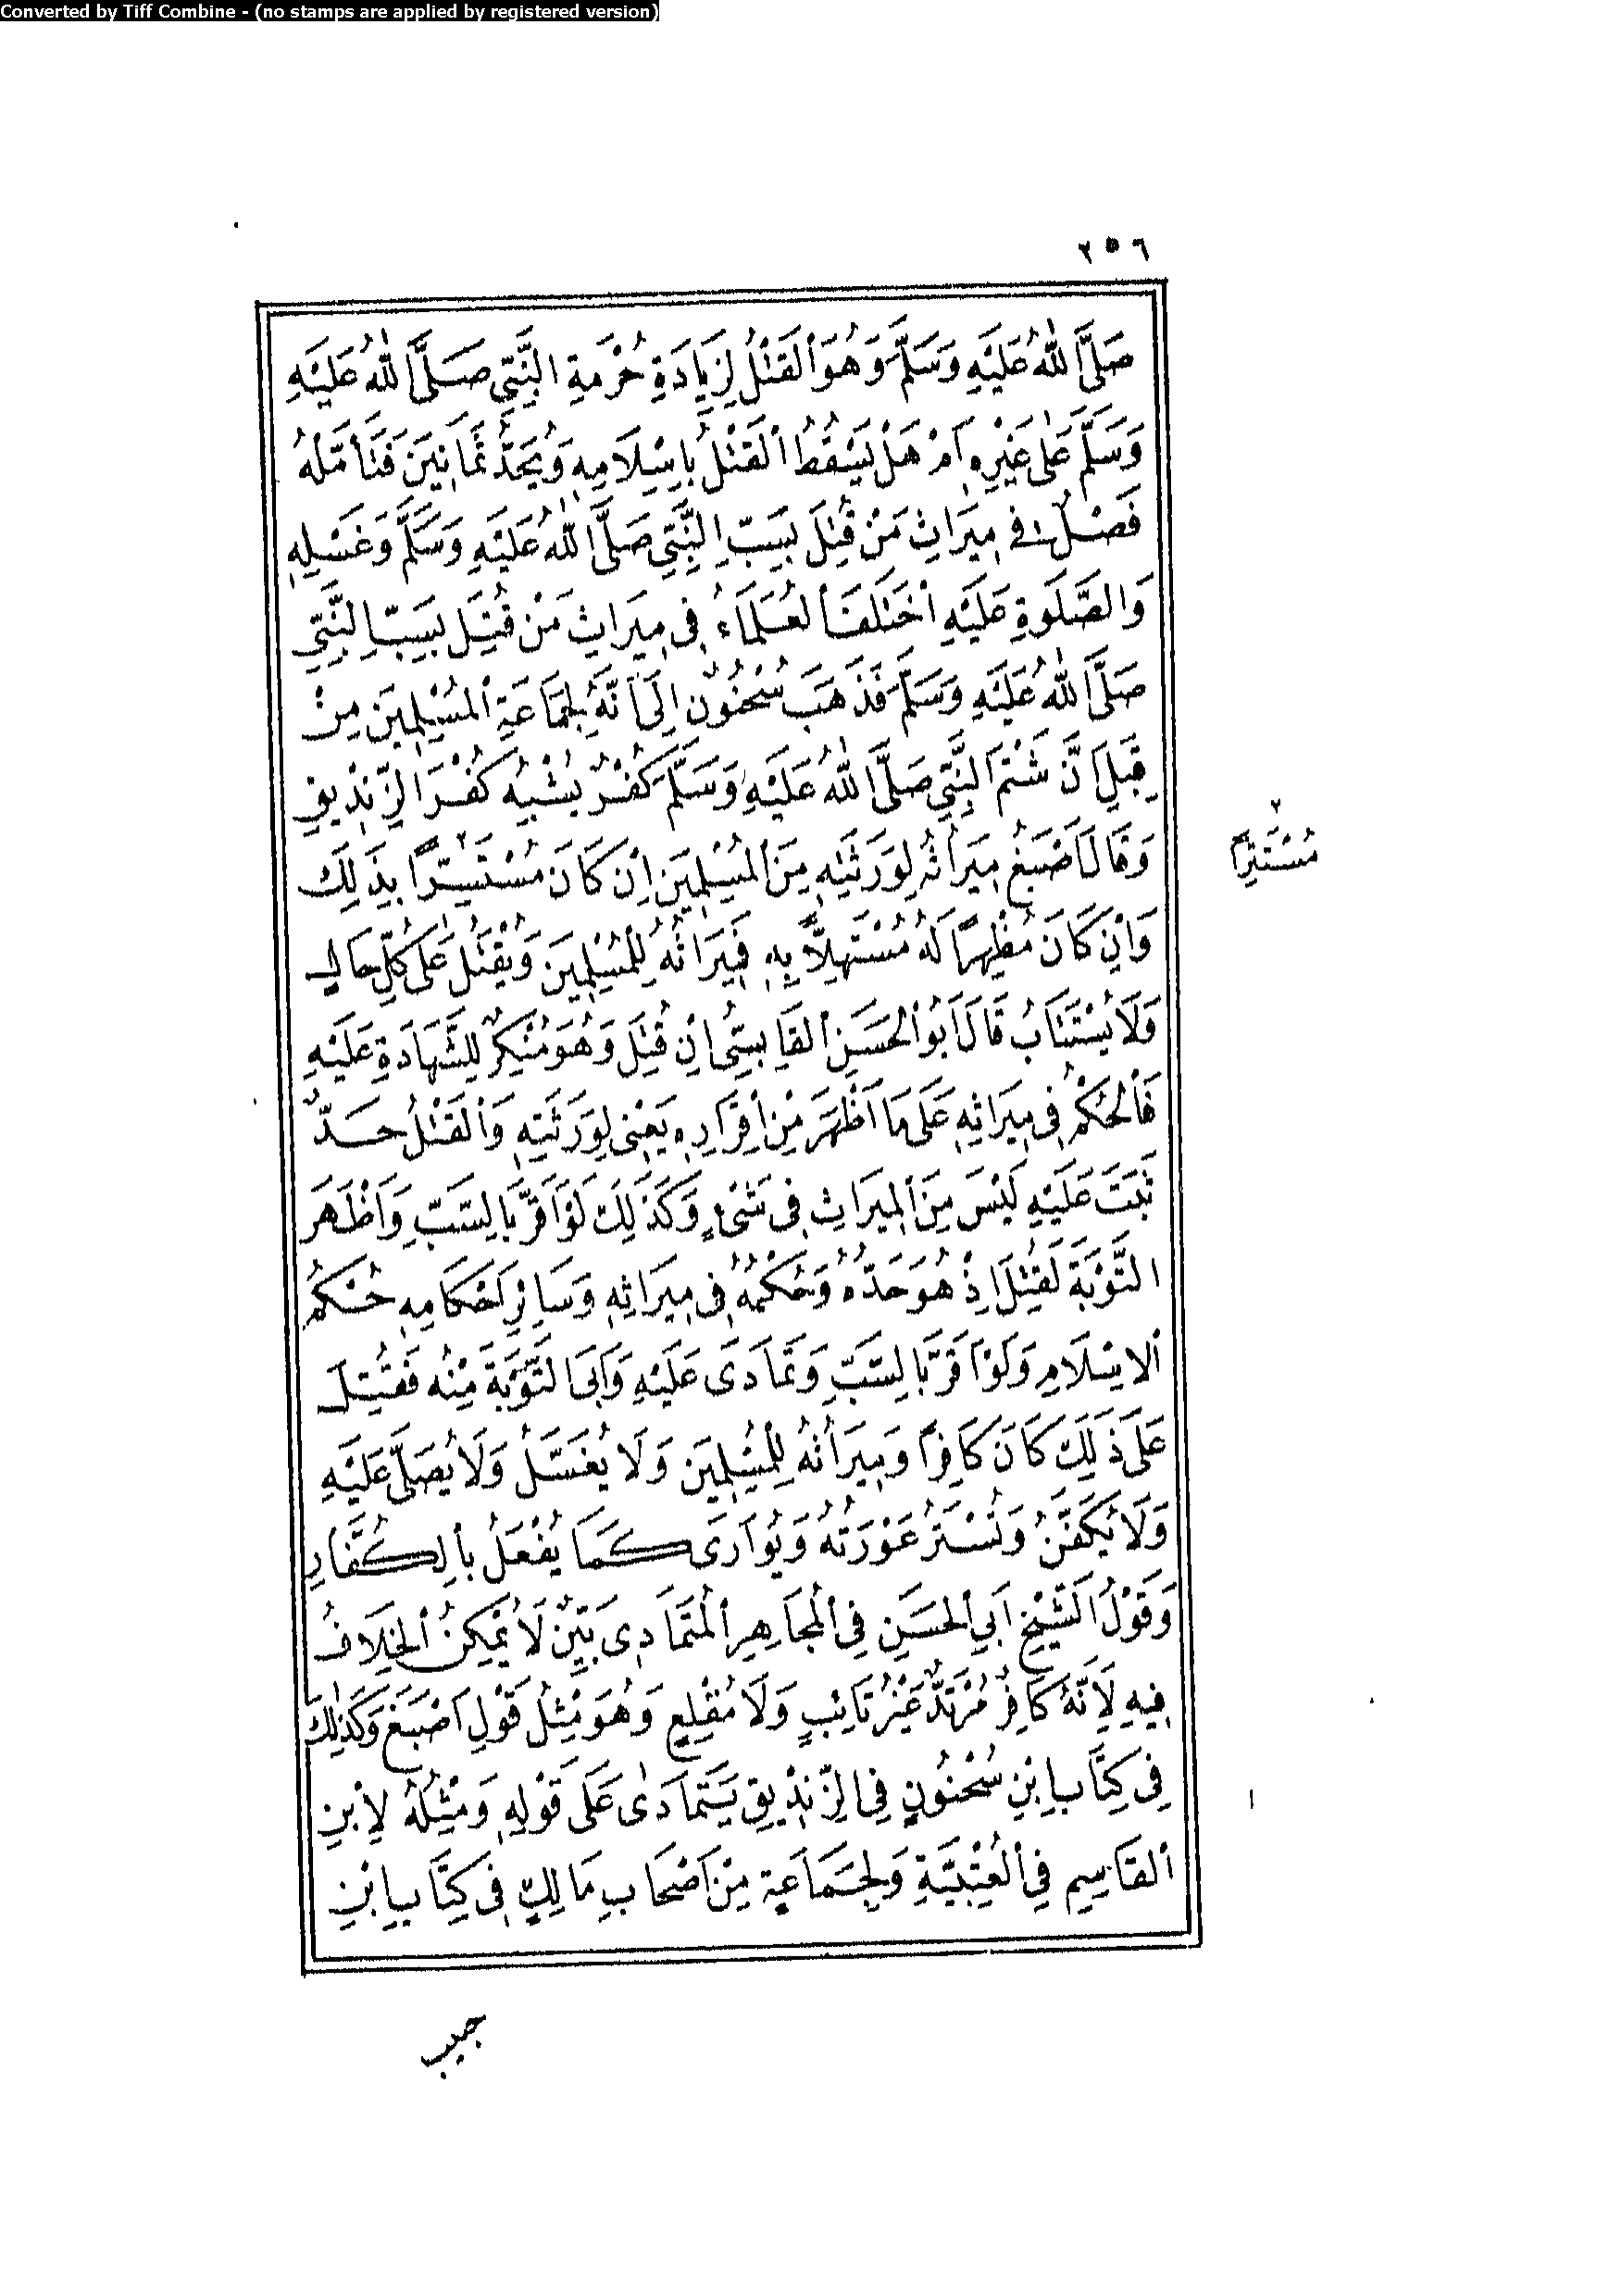 Converted by Tiff Combine - (no stamps are applied by registered version)
٢٥٦
صَلَّى اللهُ عَلَيْهِ وَسَلَّمَ وَهُوَ الْقَتْلُ لِزِيَادَةِ حُرْمَةِ النَّبِيِّ صَلَّى اللهُ عَلَيْهِ
وَسَلَّمَ عَلَى غَيْرِهِ أَمْ هَلْ يَسْقُطُ الْقَتْلُ بِإِسْلَامِهِ وَيُحَدُّ ثَمَانِينَ فَتَأَمَّلْهُ
فَصْلٌ فِي مِيرَاثِ مَنْ قُتِلَ بِسَبِّ النَّبِيِّ صَلَّى اللهُ عَلَيْهِ وَسَلَّمَ وَغَسْلِهِ
وَالصَّلَوةِ عَلَيْهِ اخْتَلَفَ الْعُلَمَاءُ فِي مِيرَاثِ مَنْ قُتِلَ بِسَبِّ النَّبِيِّ
صَلَّى اللهُ عَلَيْهِ وَسَلَّمَ فَذَهَبَ سُحْنُونٌ إِلَى أَنَّهُ لِجَمَاعَةِ الْمُسْلِمِينَ مِنْ
قِبَلِ أَنَّ شَتْمَ النَّبِيِّ صَلَّى اللهُ عَلَيْهِ وَسَلَّمَ كُفْرٌ يُشْبِهُ كُفْرَ الزِّنْدِيقِ
وَقَالَ أَصْبَغُ مِيرَاثُهُ لِوَرَثَتِهِ مِنَ الْمُسْلِمِينَ إِنْ كَانَ مُسْتَسِرًّا بِذَلِكَ
٢
مُسْتَتِرًا
وَإِنْ كَانَ مُظْهِرًا لَهُ مُسْتَهِلًّا بِهِ فَمِيرَاثُهُ لِلْمُسْلِمِينَ وَيُقْتَلُ عَلَى كُلِّ حَالٍ
وَلَا يُسْتَتَابُ قَالَ أَبُو الْحَسَنِ الْقَابِسِيُّ إِنْ قُتِلَ وَهُوَ مُنْكِرٌ لِلشَّهَادَةِ عَلَيْهِ
فَالْحُكْمُ فِي مِيرَاثِهِ عَلَى مَا أَظْهَرَ مِنْ إِقْرَارِهِ يَعْنِي لِوَرَثَتِهِ وَالْقَتْلُ حَدٌّ
ثَبَتَ عَلَيْهِ لَيْسَ مِنَ الْمِيرَاثِ فِي شَيْءٍ وَكَذَلِكَ لَوْ أَقَرَّ بِالسَّبِّ وَأَظْهَرَ
التَّوْبَةَ لَقُتِلَ إِذْ هُوَ حَدُّهُ وَحُكْمُهُ فِي مِيرَاثِهِ وَسَائِرِ أَحْكَامِهِ حُكْمُ
الْإِسْلَامِ وَلَوْ أَقَرَّ بِالسَّبِّ وَتَمَادَى عَلَيْهِ وَأَبَى التَّوْبَةَ مِنْهُ فَقُتِلَ
عَلَى ذَلِكَ كَانَ كَافِرًا وَمِيرَاثُهُ لِلْمُسْلِمِينَ وَلَا يُغَسَّلُ وَلَا يُصَلَّى عَلَيْهِ
وَلَا يُكَفَّنُ وَتُسْتَرُ عَوْرَتُهُ وَيُوَارَى كَمَا يُفْعَلُ بِالْكُفَّارِ
وَقَوْلُ الشَّيْخِ أَبِي الْحَسَنِ فِي الْمُجَاهِرِ الْمُتَمَادِي بَيِّنٌ لَا يُمْكِنُ الْخِلَافُ
فِيهِ لِأَنَّهُ كَافِرٌ مُرْتَدٌّ غَيْرُ تَائِبٍ وَلَا مُقْلِعٍ وَهُوَ مِثْلُ قَوْلِ أَصْبَغَ وَكَذَلِكَ
فِي كِتَابِ ابْنِ سُحْنُونٍ فِي الزِّنْدِيقِ يَتَمَادَى عَلَى قَوْلِهِ وَمِثْلُهُ لِابْنِ
الْقَاسِمِ فِي الْعُتْبِيَّةِ وَلِجَمَاعَةٍ مِنْ أَصْحَابِ مَالِكٍ فِي كِتَابِ ابْنِ
حبيب